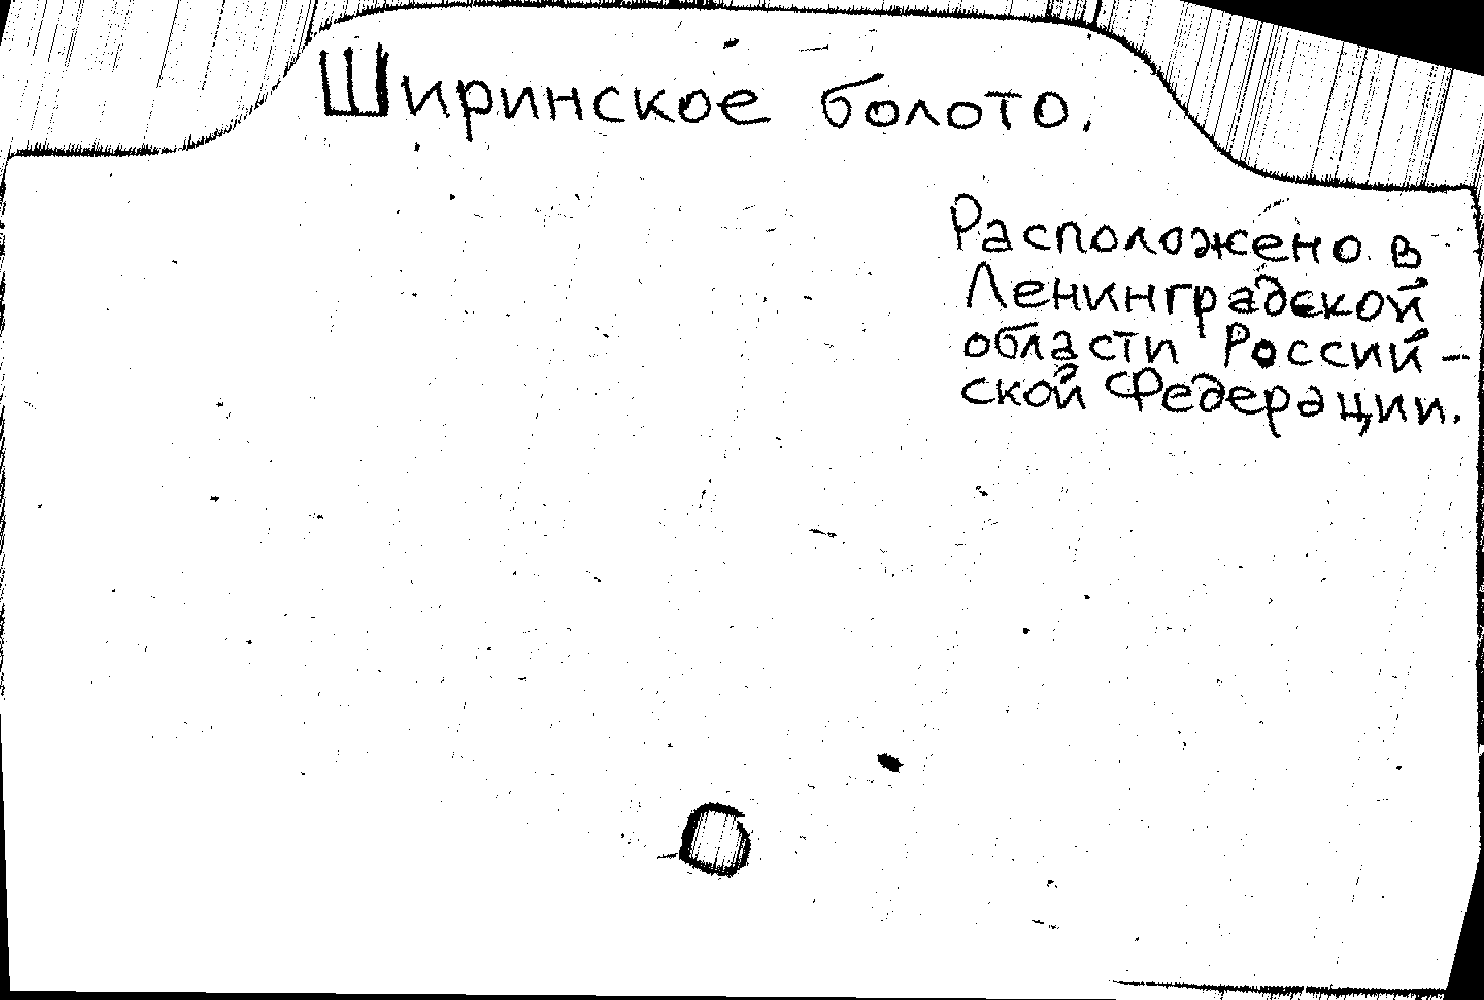 Ширинское болото.
Расположено в
Ленинградской
области Россий-
ской Федерации.